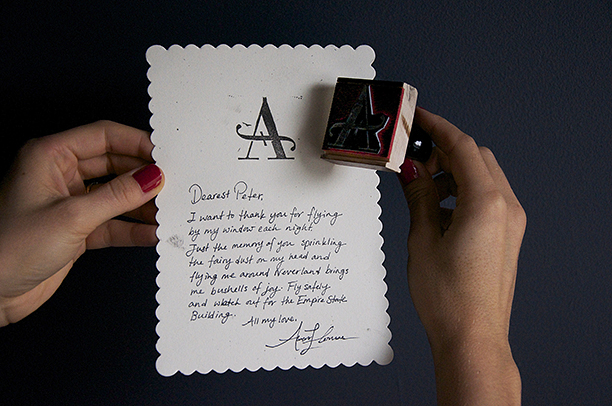 A
Dearest Peter,
I want to thank you for flying
by my window each night.
Just the memory of you sprinkling
the fairy dust on my head and
flying me around Neverland brings
me bushells of joy. Fly safely
and watch out for the Empire State
Building.
All my love,